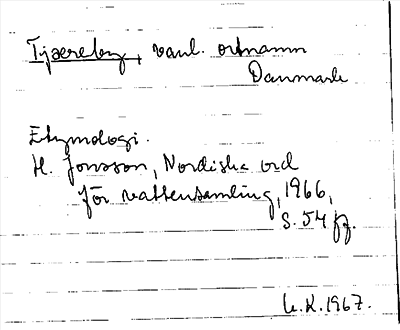 Tjæreby, vanl. ortnamn
Danmark
Etymologi.
H. Jonsson, Nordiska ord
för vattensamling, 1966,
S. 54 ff.
U.K. 1967.